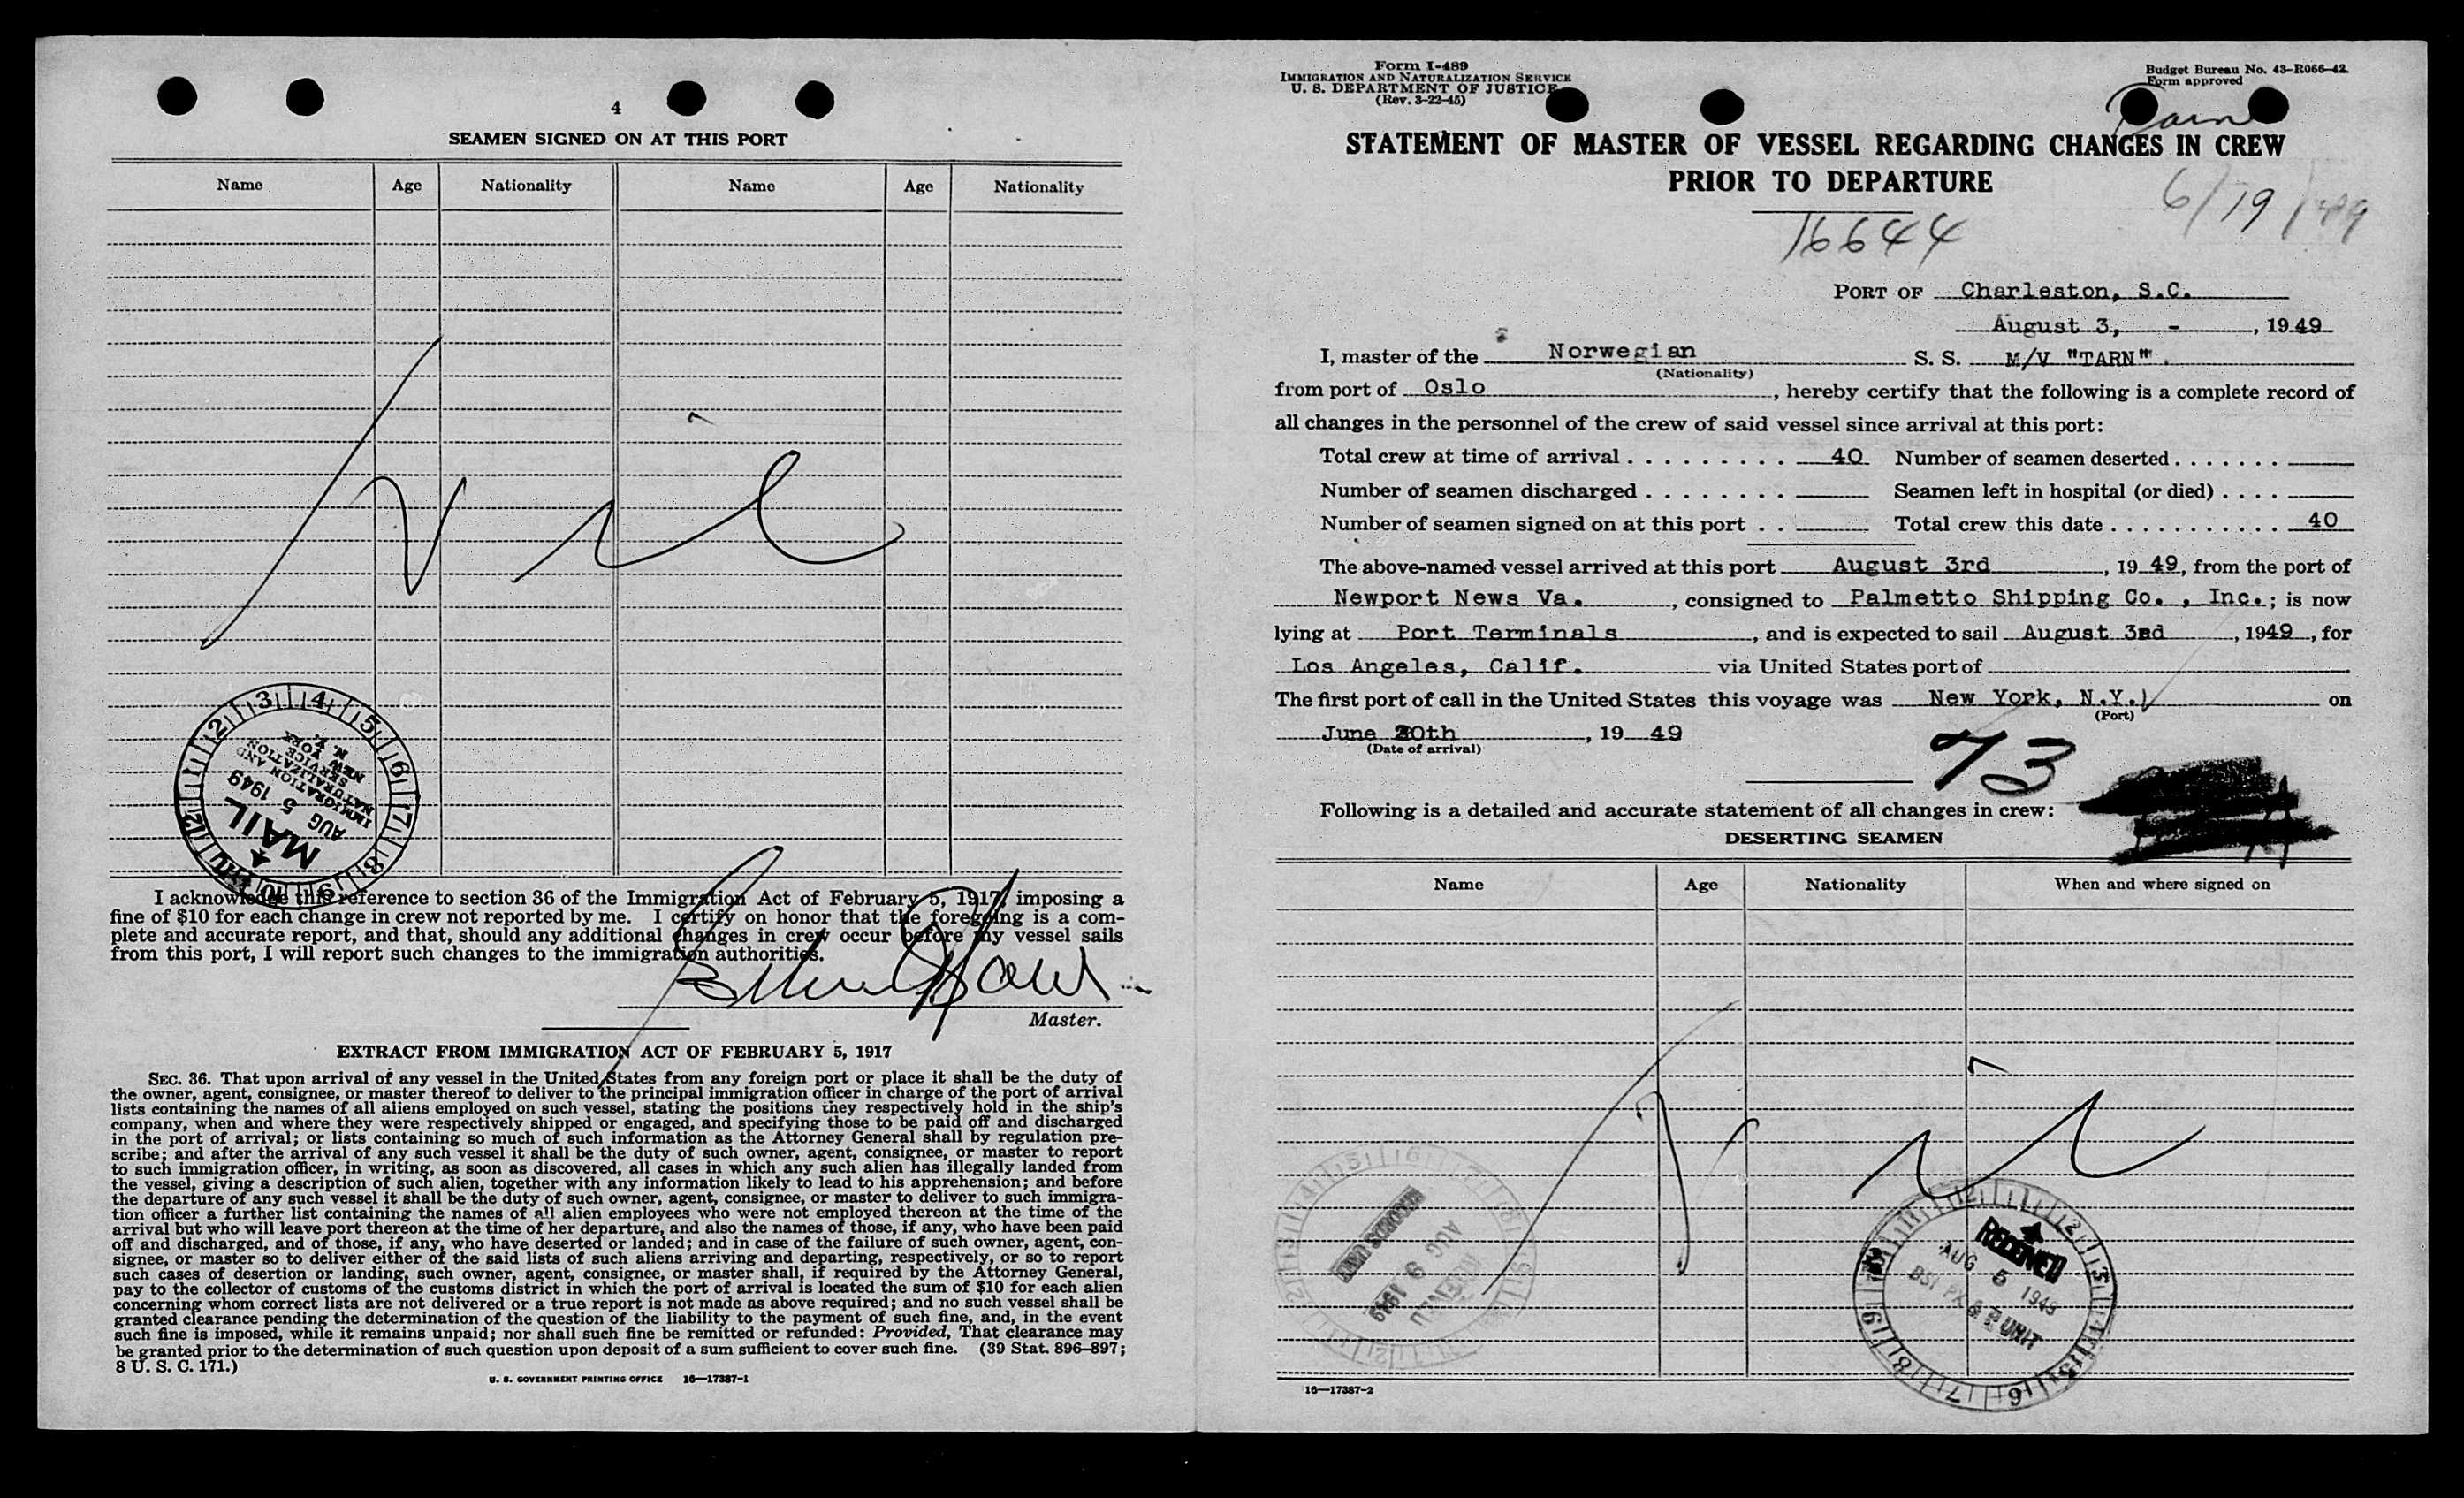 4
SEAMEN SIGNED ON AT THIS PORT
Name Age Nationality Name Age Nationality
Nil
MAIL
AUG 5 1949
IMMIGRATION AND
NATURALIZATION
SERVICE
NEW YORK
N. Y.
I acknowledge this reference to section 36 of the Immigration Act of February 5, 1917, imposing a
fine of $10 for each change in crew not reported by me. I certify on honor that the foregoing is a com-
plete and accurate report, and that, should any additional changes in crew occur before my vessel sails
from this port, I will report such changes to the immigration authorities.
Master.
EXTRACT FROM IMMIGRATION ACT OF FEBRUARY 5, 1917
SEC. 36. That upon arrival of any vessel in the United States from any foreign port or place it shall be the duty of
the owner, agent, consignee, or master thereof to deliver to the principal immigration officer in charge of the port of arrival
lists containing the names of all aliens employed on such vessel, stating the positions they respectively hold in the ship's
company, when and where they were respectively shipped or engaged, and specifying those to be paid off and discharged
in the port of arrival; or lists containing so much of such information as the Attorney General shall by regulation pre-
scribe; and after the arrival of any such vessel it shall be the duty of such owner, agent, consignee, or master to report
to such immigration officer, in writing, as soon as discovered, all cases in which any such alien has illegally landed from
the vessel, giving a description of such alien, together with any information likely to lead to his apprehension; and before
the departure of any such vessel it shall be the duty of such owner, agent, consignee, or master to deliver to such immigra-
tion officer a further list containing the names of all alien employees who were not employed thereon at the time of the
arrival but who will leave port thereon at the time of her departure, and also the names of those, if any, who have been paid
off and discharged, and of those, if any, who have deserted or landed; and in case of the failure of such owner, agent, con-
signee, or master so to deliver either of the said lists of such aliens arriving and departing, respectively, or so to report
such cases of desertion or landing, such owner, agent, consignee, or master shall, if required by the Attorney General,
pay to the collector of customs of the customs district in which the port of arrival is located the sum of $10 for each alien
concerning whom correct lists are not delivered or a true report is not made as above required; and no such vessel shall be
granted clearance pending the determination of the question of the liability to the payment of such fine, and, in the event
such fine is imposed, while it remains unpaid; nor shall such fine be remitted or refunded: Provided, That clearance may
be granted prior to the determination of such question upon deposit of a sum sufficient to cover such fine. (39 Stat. 896–897;
8 U. S. C. 171.)
U. S. GOVERNMENT PRINTING OFFICE 16—17387-1
Form I-489
IMMIGRATION AND NATURALIZATION SERVICE
U. S. DEPARTMENT OF JUSTICE
(Rev. 3-22-45)
Budget Bureau No. 43-R066-42
Form approved
Tarn
STATEMENT OF MASTER OF VESSEL REGARDING CHANGES IN CREW
PRIOR TO DEPARTURE
6/19/49
16644
PORT OF Charleston, S.C.
August 3, - , 1949
I, master of the Norwegian S. S. M/V "TARN"
(Nationality)
from port of Oslo , hereby certify that the following is a complete record of
all changes in the personnel of the crew of said vessel since arrival at this port:
Total crew at time of arrival . . . . . . . . . . 40 Number of seamen deserted . . . . . . .
Number of seamen discharged . . . . . . . . Seamen left in hospital (or died) . . . .
Number of seamen signed on at this port . . Total crew this date . . . . . . . . . . . 40
The above-named vessel arrived at this port August 3rd , 19 49, from the port of
Newport News Va. , consigned to Palmetto Shipping Co. , Inc.; is now
lying at Port Terminals , and is expected to sail August 3rd , 1949 , for
Los Angeles, Calif. via United States port of
The first port of call in the United States this voyage was New York, N.Y. on
(Port)
June 20th , 19 49
(Date of arrival)
73
Following is a detailed and accurate statement of all changes in crew:
DESERTING SEAMEN
Name Age Nationality When and where signed on
Nil
RECORDS UNIT
AUG 9 1949
RECEIVED
AUG 5 1949
16—17387-2